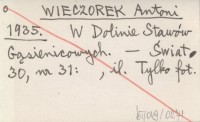 WIECZOREK Antoni
1935. W Dolinie Stawów
Gąsienicowych. — Świat
30, nr 31: , il. Tylko fot.